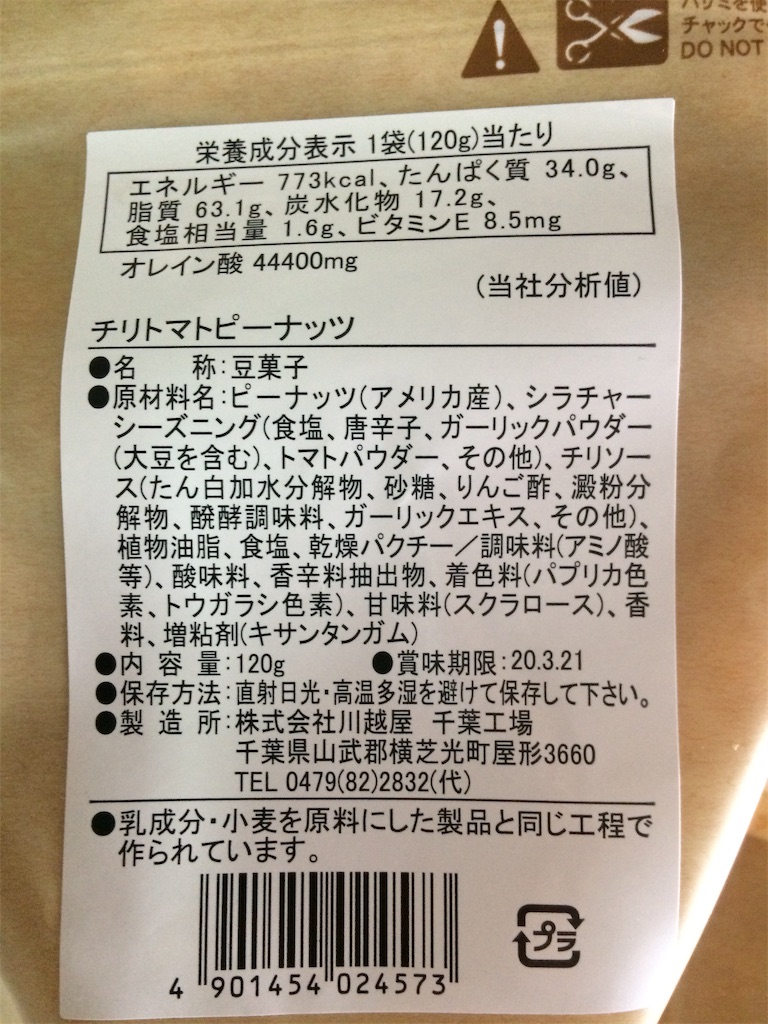 チャックで
DO NOT
栄養成分表示 1袋(120g)当たり
エネルギー 773kcal、たんぱく質 34.0g、
脂質 63.1g、炭水化物 17.2g、
食塩相当量 1.6g、ビタミンE 8.5mg
オレイン酸 44400mg
(当社分析値)
チリトマトピーナッツ
●名 称:豆菓子
●原材料名:ピーナッツ(アメリカ産)、シラチャー
シーズニング(食塩、唐辛子、ガーリックパウダー
(大豆を含む)、トマトパウダー、その他)、チリソー
ス(たん白加水分解物、砂糖、りんご酢、澱粉分
解物、醗酵調味料、ガーリックエキス、その他)、
植物油脂、食塩、乾燥パクチー/調味料(アミノ酸
等)、酸味料、香辛料抽出物、着色料(パプリカ色
素、トウガラシ色素)、甘味料(スクラロース)、香
料、増粘剤(キサンタンガム)
●内 容 量:120g ●賞味期限:20.3.21
●保存方法:直射日光・高温多湿を避けて保存して下さい。
●製 造 所:株式会社川越屋 千葉工場
千葉県山武郡横芝光町屋形3660
TEL 0479(82)2832(代)
●乳成分・小麦を原料にした製品と同じ工程で
作られています。
4 901454 024573
プラ